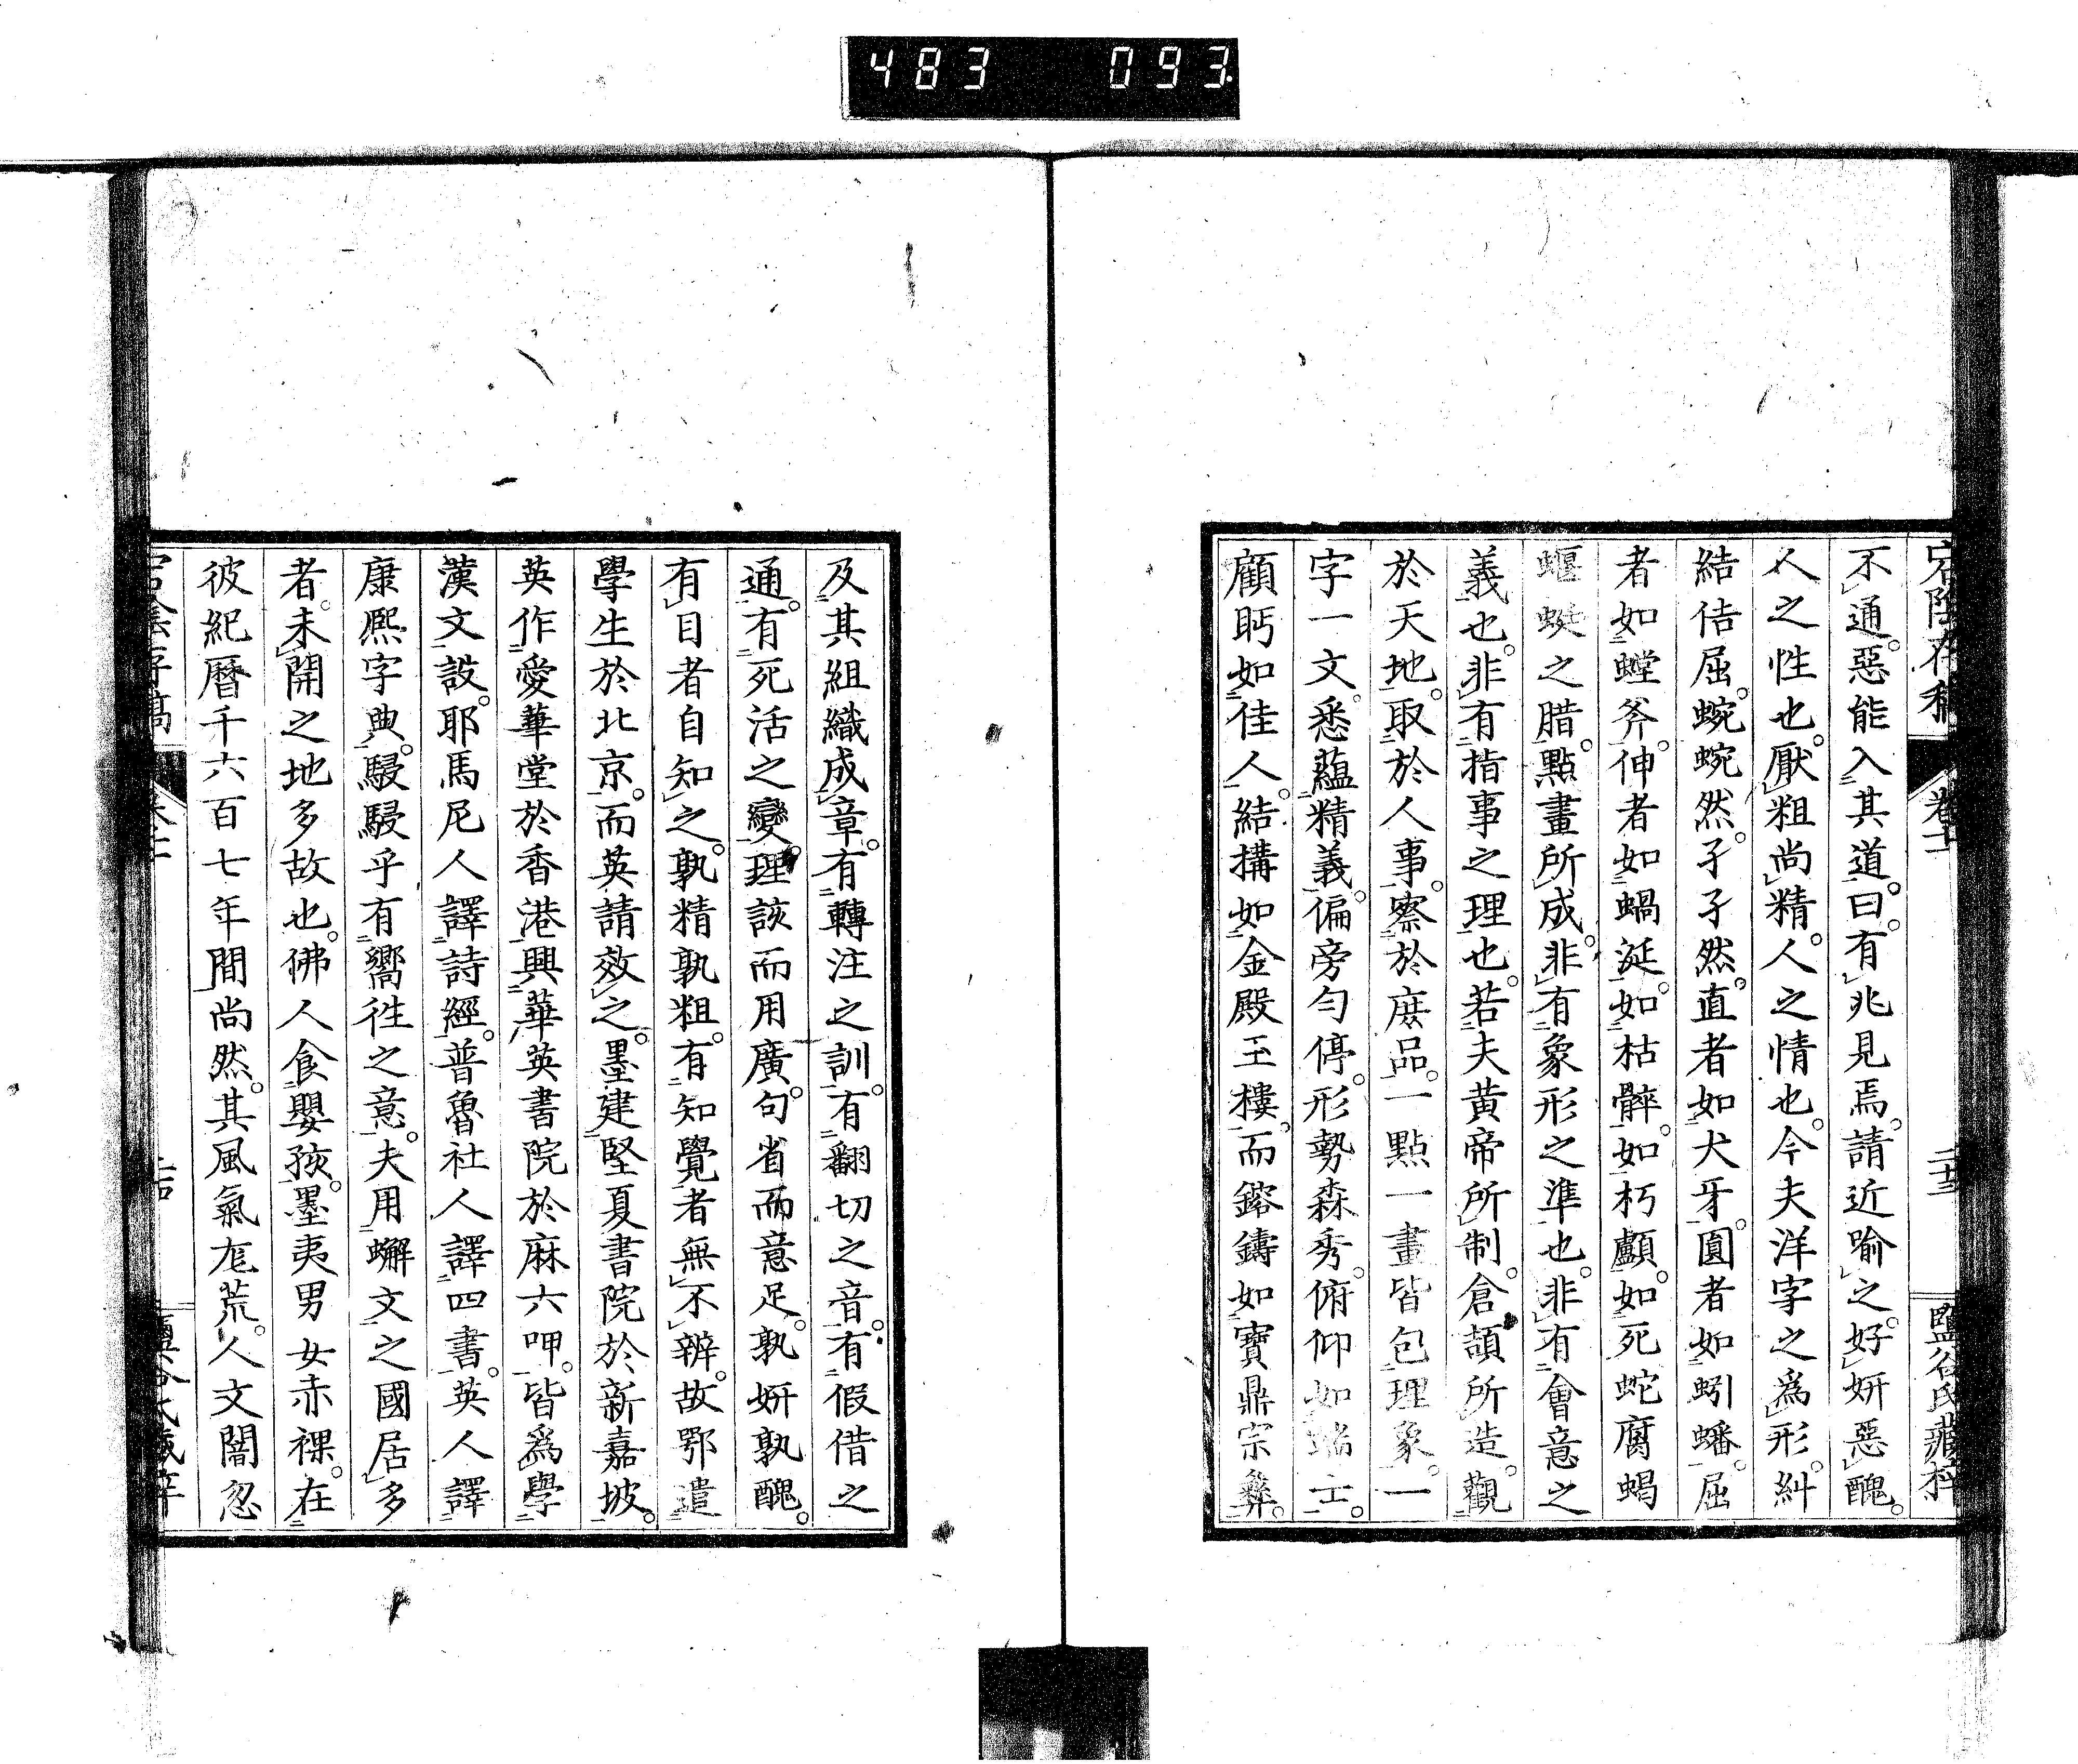 483 093
宕陰存稿 卷十一 二十三 鹽谷氏藏梓
不通。惡能入其道。曰。有兆見焉。請近喻之。好妍惡醜。
人之性也。厭粗尚精。人之情也。今夫洋字之爲形。糾
結佶屈。蜿蜿然。孑孑然。直者如犬牙。圓者如蚓蟠。屈
者如螳斧。伸者如蝸涎。如枯髒。如朽顱。如死蛇腐蝎
蝘蜓之腊。點畫所成。非有象形之準也。非有會意之
義也。非有指事之理也。若夫黃帝所制。倉頡所造。觀
於天地。取於人事。察於庶品。一點一畫皆包理象。一
字一文。悉蘊精義。偏旁勻停。形勢森秀。俯仰如端士。
顧眄如佳人。結搆如金殿玉樓。而鎔鑄如寶鼎宗彝。
及其組織成章。有轉注之訓。有翻切之音。有假借之
通。有死活之變。理該而用廣。句省而意足。孰妍孰醜。
有目者自知之。孰精孰粗。有知覺者無不辨。故鄂遣
學生於北京。而英請效之。墨建堅夏書院於新嘉坡。
英作愛華堂於香港。興華英書院於麻六呷。皆爲學
漢文設。耶馬尼人譯詩經。普魯社人譯四書。英人譯
康熙字典。駸駸乎有嚮往之意。夫用蠏文之國。居多
者。未開之地多故也。佛人食嬰孩。墨夷男女赤裸。在
彼紀曆千六百七年間尚然。其風氣尨荒。人文闇忽